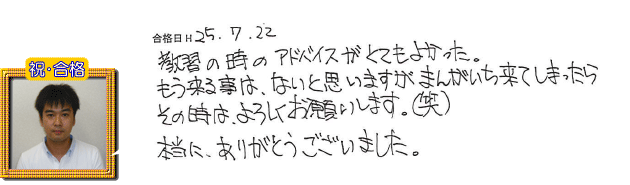 合格日 H 25.7.22
祝・合格
教習の時のアドバイスがとてもよかった。
もう来る事は、ないと思いますが、まんがいち来てしまったら
その時は、よろしくお願いします。(笑)
本当に、ありがとうございました。